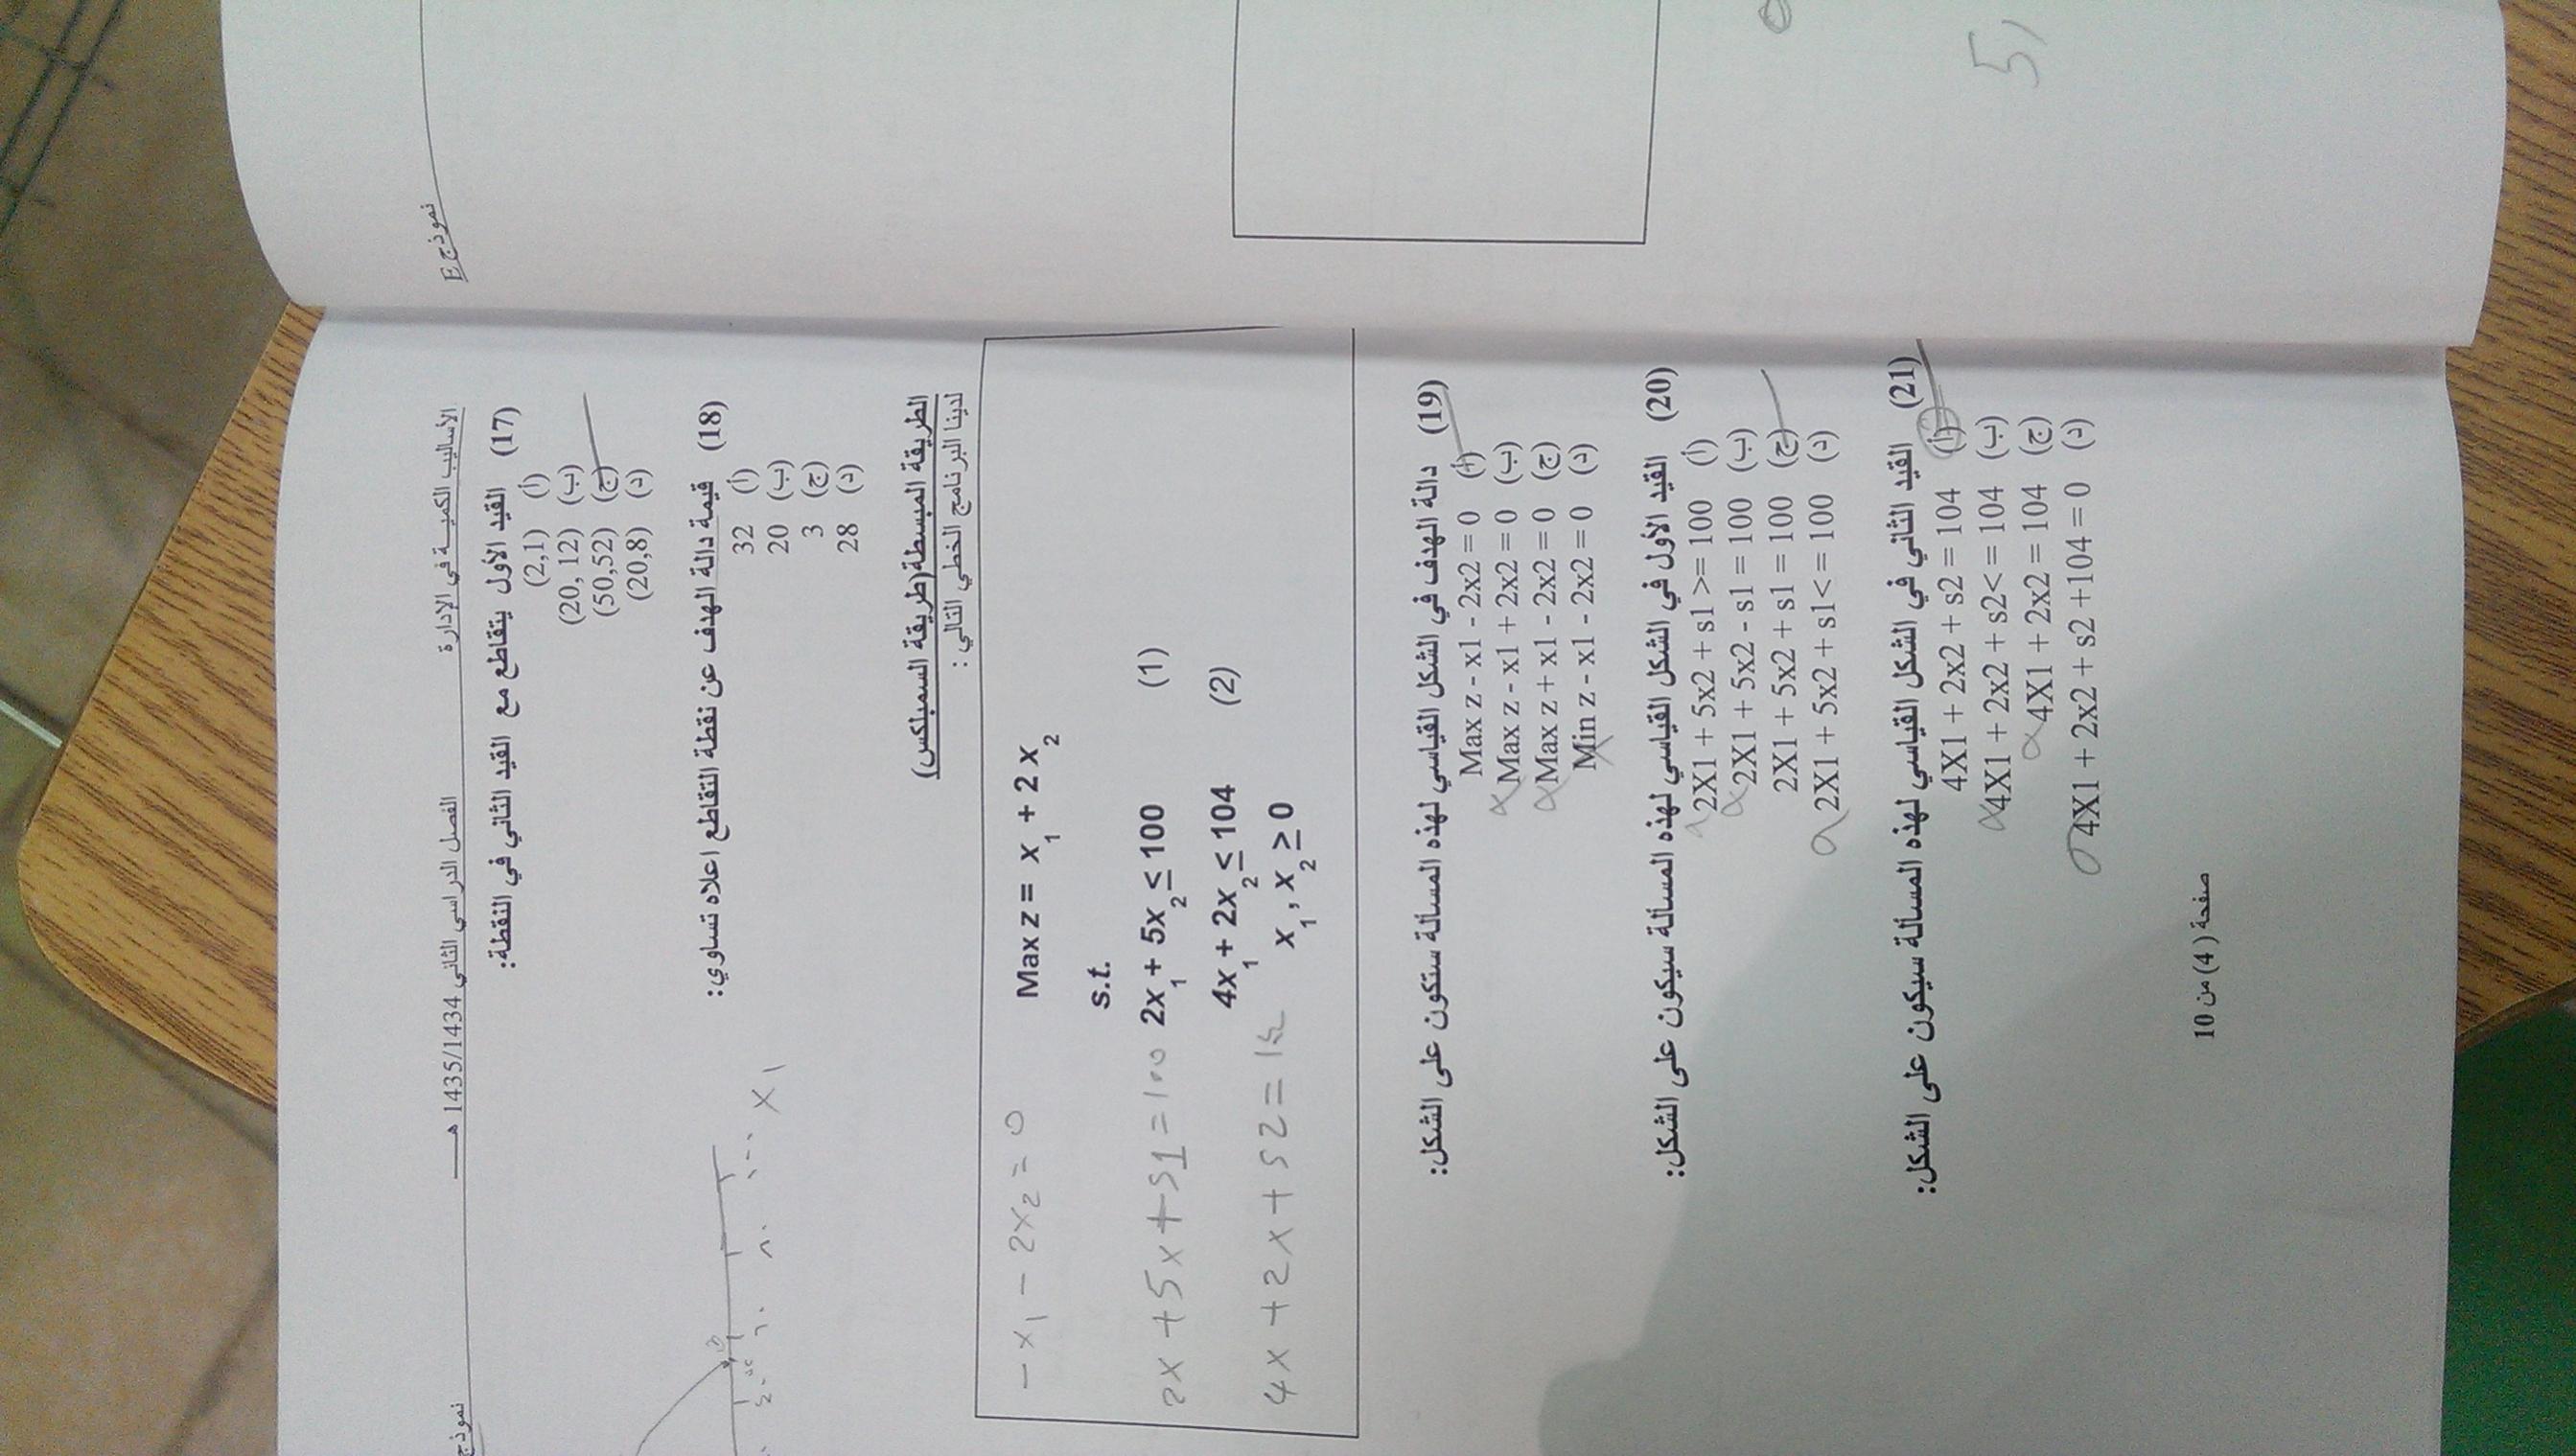 نموذج E
الأساليب الكمية في الإدارة الفصل الدراسي الثاني 1435/1434 هـ نموذج
(17) القيد الأول يتقاطع مع القيد الثاني في النقطة:
(أ) (2,1)
(ب) (20, 12)
(ج) (50,52)
(د) (20,8)
(18) قيمة دالة الهدف عن نقطة التقاطع اعلاه تساوي:
(أ) 32
(ب) 20
(ج) 3
(د) 28
X1
الطريقة المبسطة(طريقة السمبلكس)
لدينا البرنامج الخطي التالي :
Max z = x1 + 2x2
- x1 - 2x2 = 0
s.t.
2x1 + 5x2 ≤ 100 (1)
2x + 5x + s1 = 100
4x1 + 2x2 ≤ 104 (2)
4x + 2x + s2 =
x1 , x2 ≥ 0
(19) دالة الهدف في الشكل القياسي لهذه المسألة ستكون على الشكل:
(أ) Max z - x1 - 2x2 = 0
(ب) Max z - x1 + 2x2 = 0
(ج) Max z + x1 - 2x2 = 0
(د) Min z - x1 - 2x2 = 0
(20) القيد الأول في الشكل القياسي لهذه المسألة سيكون على الشكل:
(أ) 2X1 + 5x2 + s1 >= 100
(ب) 2X1 + 5x2 - s1 = 100
(ج) 2X1 + 5x2 + s1 = 100
(د) 2X1 + 5x2 + s1< = 100
(21) القيد الثاني في الشكل القياسي لهذه المسألة سيكون على الشكل:
(أ) 4X1 + 2x2 + s2 = 104
(ب) 4X1 + 2x2 + s2< = 104
(ج) 4X1 + 2x2 = 104
(د) 4X1 + 2x2 + s2 +104 = 0
صفحة (4) من 10
5,